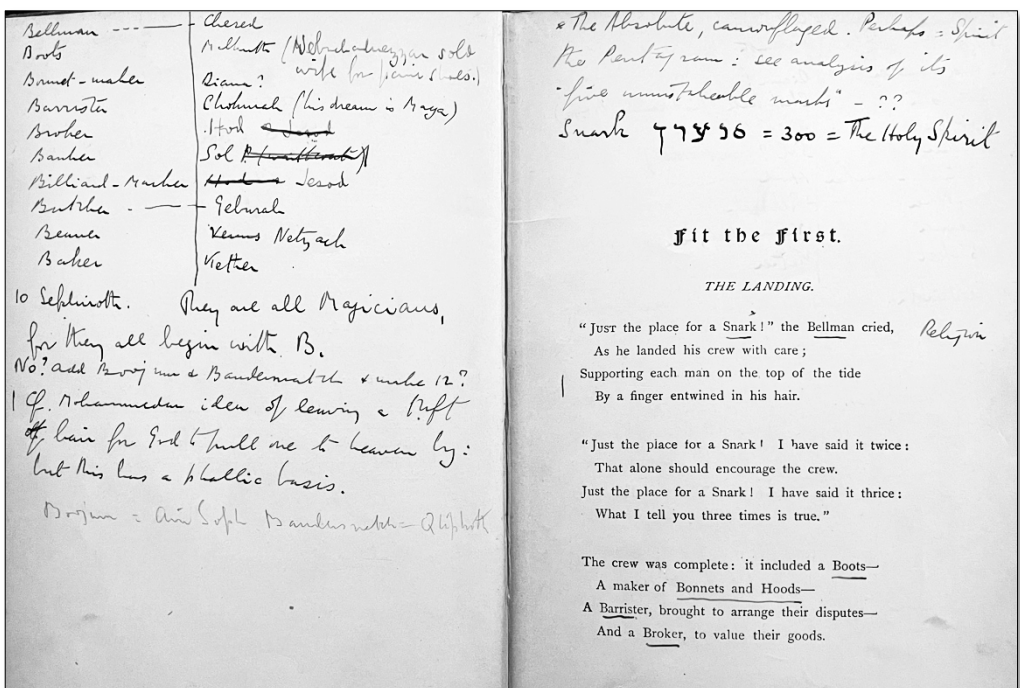 Bellman - Chesed
Boots Malkuth (Nebuchadnezzar sold
wife for pair shoes.)
Bonnet-maker Diana?
Barrister Chokmah (his dream is Maya)
Broker Hod Jesod
Banker Sol
Billiard-Marker Hod Jesod
Butcher - Geburah
Beaver Venus Netzach
Baker Kether
10 Sephiroth. They are all Magicians,
for they all begin with B.
No? add Boojum & Bandersnatch & make 12?
Cf. Mohammedan idea of leaving a tuft
of hair for God to pull one to heaven by:
but this has a phallic basis.
Boojum = Ain Soph Bandersnatch = Qliphoth
The Absolute, camouflaged. Perhaps = Spirit
the Pentagram: see analysis of its
"five unmistakeable marks" - ??
Snark = 300 = The Holy Spirit
Fit the First.
THE LANDING.
"JUST the place for a Snark!" the Bellman cried, Religion
As he landed his crew with care;
Supporting each man on the top of the tide
By a finger entwined in his hair.
"Just the place for a Snark! I have said it twice:
That alone should encourage the crew.
Just the place for a Snark! I have said it thrice:
What I tell you three times is true."
The crew was complete: it included a Boots—
A maker of Bonnets and Hoods—
A Barrister, brought to arrange their disputes—
And a Broker, to value their goods.